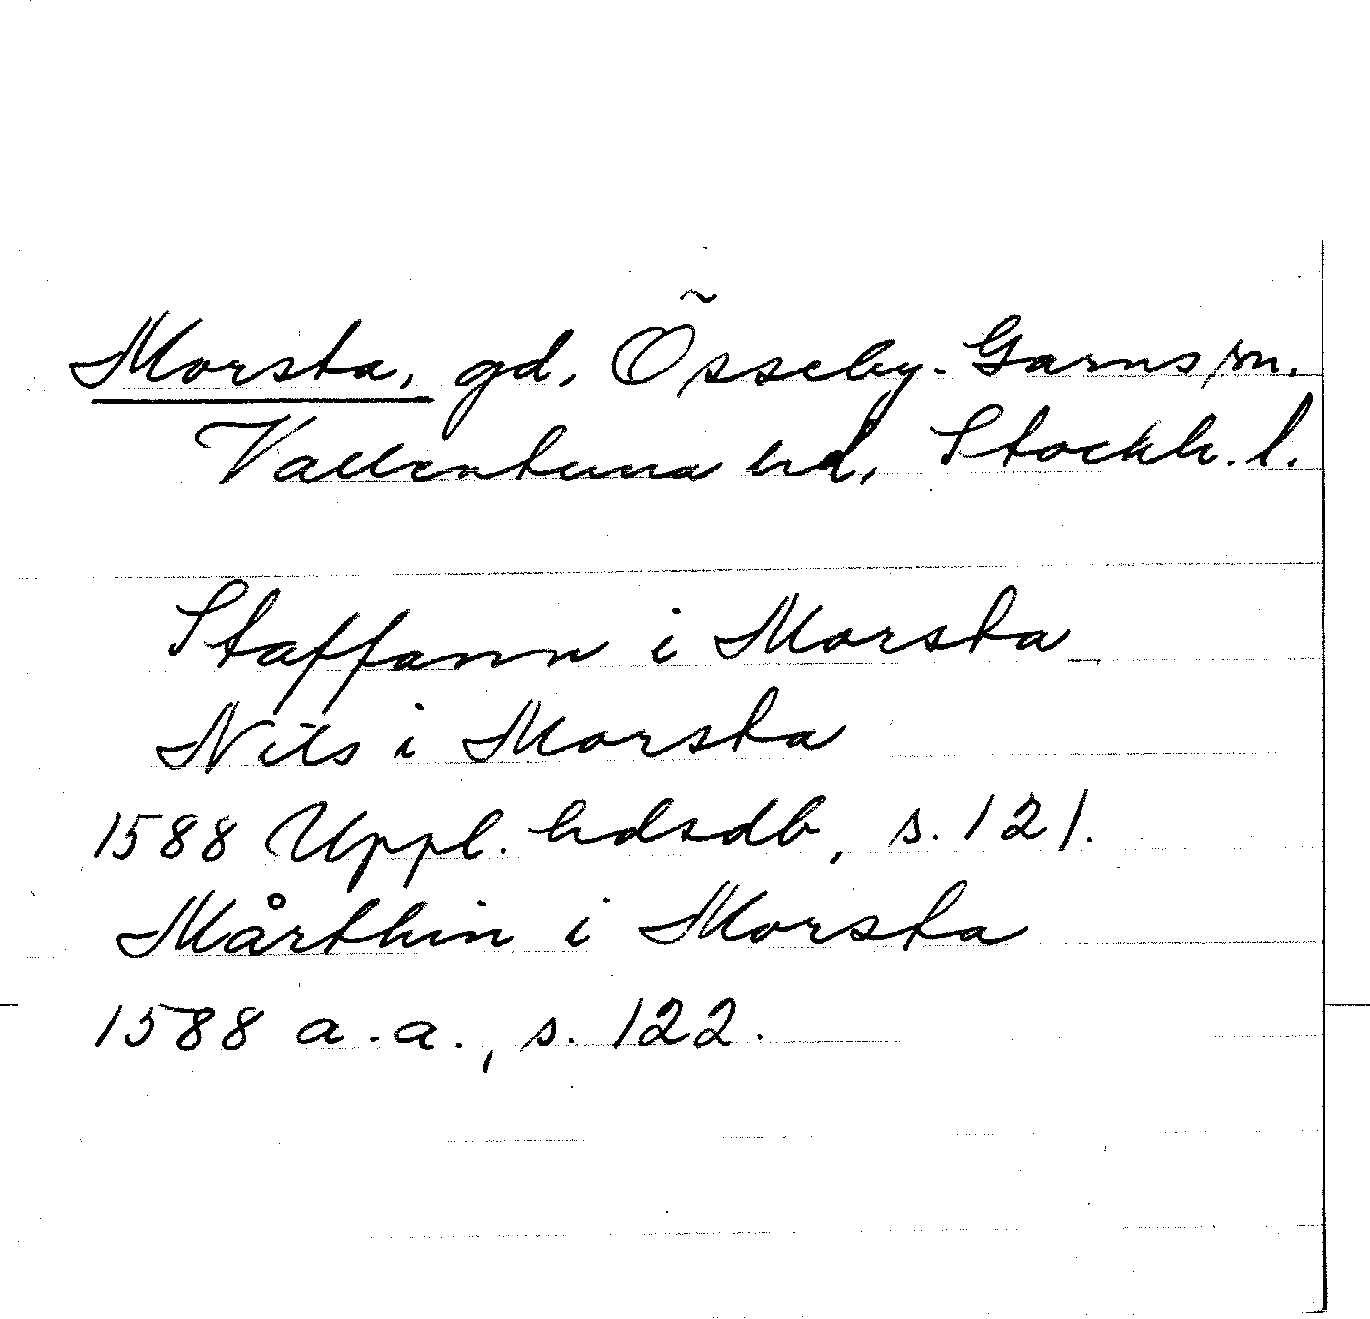 Morsta, gd, Össeby-Garns sn.
Vallentuna hd, Stockh. l.
Staffann i Morsta
Nils i Morsta
1588 Uppl. hdsdb, s. 121.
Mårthin i Morsta
1588 a.a., s. 122.